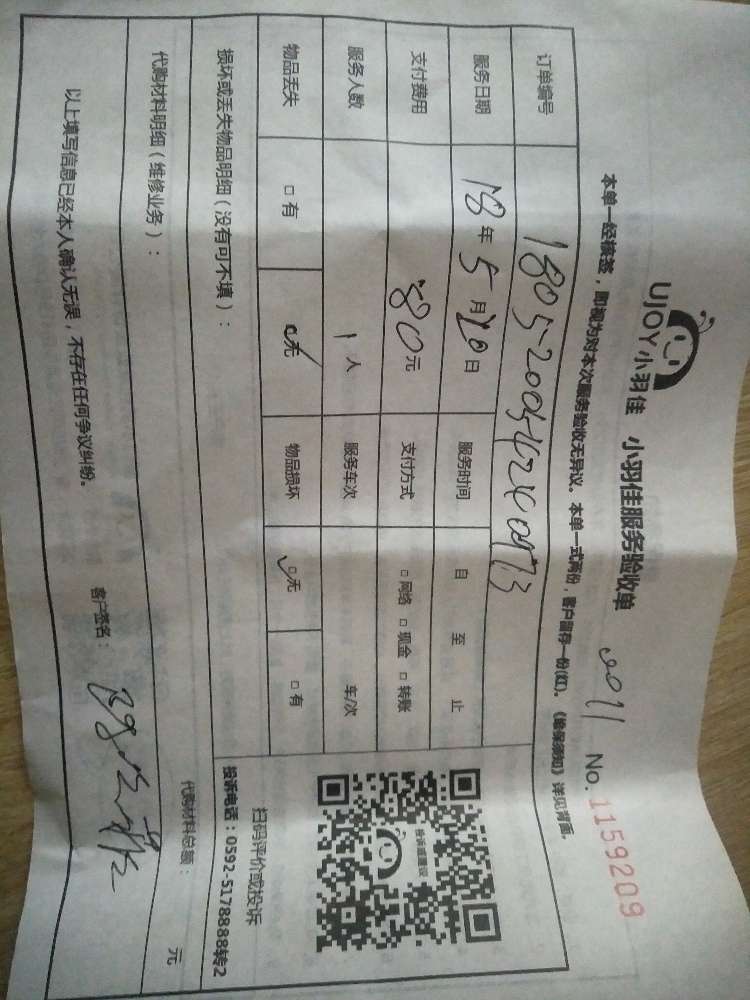 UJOY小羽佳 小羽佳服务验收单 No.1159209
本单一经核签，即视为对本次服务验收无异议。本单一式两份，客户留存一份(红)。《维保须知》详见背面。
订单编号
服务日期 18年5月20日 服务时间 自 至 止
支付费用 80元 支付方式 □网络 □现金 □转账
服务人数 1人 服务车次 车/次
物品丢失 □有 无 物品损坏 无 □有
损坏或丢失物品明细（没有可不填）：
扫码评价或投诉
投诉电话：0592-5178888转2
代购材料明细（维修业务）： 代购材料总额： 元
以上填写信息已经本人确认无误，不存在任何争议纠纷。 客户签名：